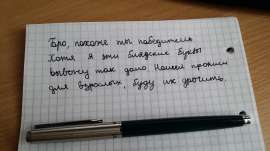 Бро, похоже ты победитель
Хотя я эти блядские буквы
вывожу так долго. Нашел прописи
для взрослых, буду их дрочить.